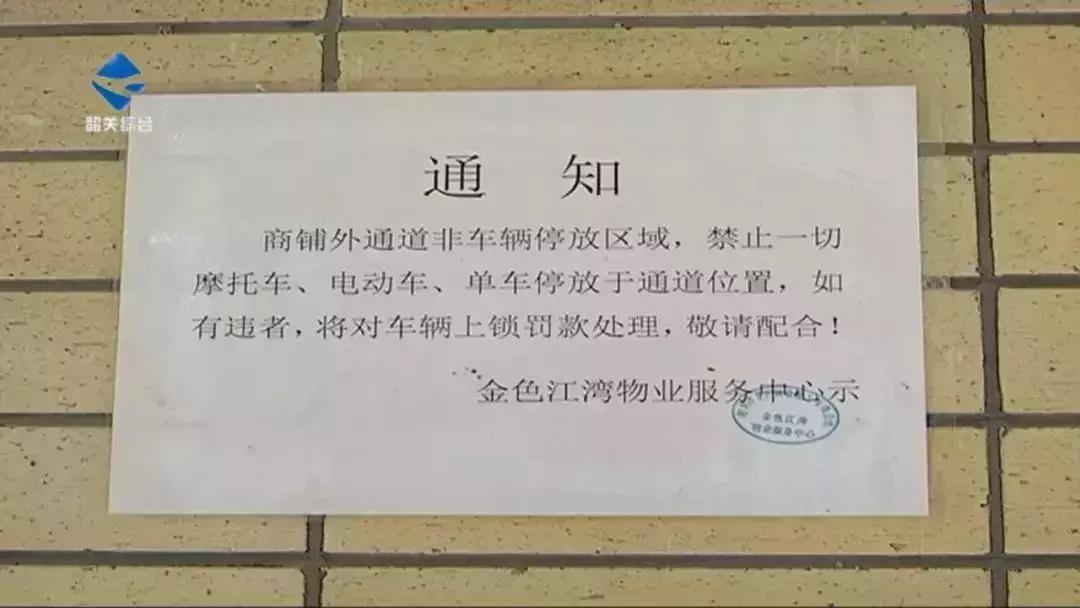 韶关综合
通 知
商铺外通道非车辆停放区域，禁止一切
摩托车、电动车、单车停放于通道位置，如
有违者，将对车辆上锁罚款处理，敬请配合！
金色江湾物业服务中心示
金色江湾
物业服务中心